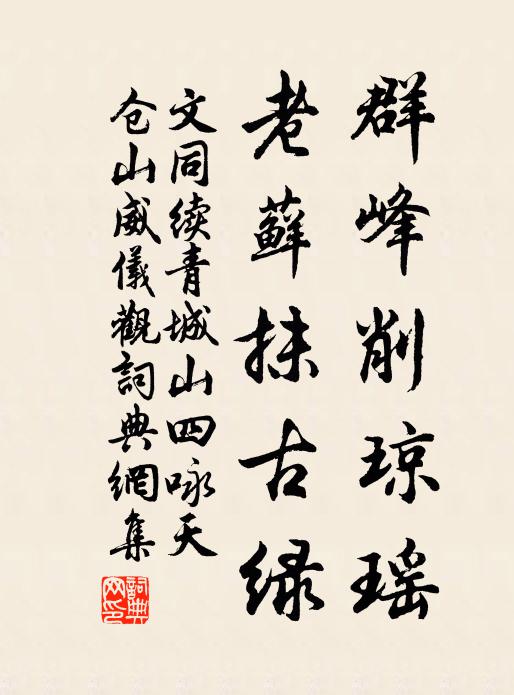 群峰削琼瑶
老藓抹古绿
文同续青城山四咏天
仓山威儀觀詞典網集
詞典網印